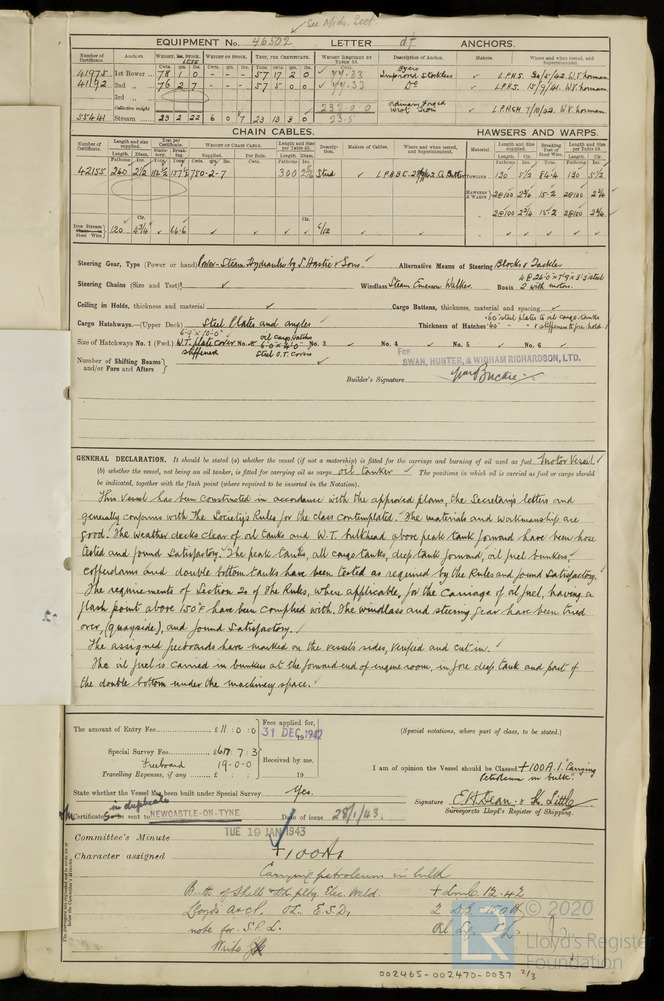 See Mids. Secn.
EQUIPMENT No. 46502 LETTER d† ANCHORS.
Number of Certificate. Anchors. WEIGHT, EX. STOCK. WEIGHT OF STOCK. TEST, PER CERTIFICATE. WEIGHT REQUIRED BY TABLE 53. Description of Anchor. Makers. Where and when tested, and Superintendent.
41975 1st Bower 78 1 0 - - - 57 17 2 0 Byers Improved Stockless L.P.H.S. W.V. Norman.
41192 2nd 76 2 7 - - - 57 5 0 0 Do L.P.H.S. 15/9/41. W.V. Norman.
3rd
Collective weight 232-0-0 Ordinary Forged
55441 Stream 23 2 22 6 0 7 23 13 3 0 23.5 Wrot Iron L.P.H.&H. 7/10/42. W.V. Norman.
CHAIN CABLES. HAWSERS AND WARPS.
Number of Certificate. Length and size supplied. Test per Certificate WEIGHT OF CHAIN CABLE. Length and Size per Table 53. Description. Makes of Cables. Where and when tested, and Superintendent. Material. Length and Size supplied. Breaking Test of Steel Wire. Length and Size per Table 53.
Length. Diam. Statutory. Breaking. Supplied. Per Rule. Length. Diam. Length. Size. Length. Size.
Fathoms Ins. Tons Tons Cwts. qrs. lbs. Cwts. Fathoms Ins. Fathoms Ins. Tons Fathoms Ins.
42155 240 2½ 750-2-7 300 Stud TOWLINE 130 5½ 84.4 130 5½
HAWSERS & WARPS 2@100 2¾ 15.2 2@100 2¾
2@100 2¾ 15.2 2@100 2¾
Iron Stream Steel Wire 120 4¾ 66.6 6/12
Steering Gear, Type (Power or hand) Power-Steam Hydraulic by J. Hastie & Sons. Alternative Means of Steering Blocks & Tackles
Steering Chains (Size and Test) Windlass Steam Emerson Walker. Boats 2 with motors.
Ceiling in Holds, thickness and material Cargo Battens, thickness, material and spacing
Cargo Hatchways.—(Upper Deck) Steel Plates and angles Thickness of Hatches .60" steel plates to oil cargo tanks
Size of Hatchways No. 1 (Fwd.) 6'-9" x 10'-0" W.T. plate cover stiffened No. 2 oil cargo hatches 6'-0" x 4'-0" Steel O.T. covers No. 3 No. 4 No. 5 No. 6
Number of Shifting Beams and/or Fore and Afters
For SWAN, HUNTER, & WIGHAM RICHARDSON, LTD.
Builder's Signature
GENERAL DECLARATION. It should be stated (a) whether the vessel (if not a motorship) is fitted for the carriage and burning of oil used as fuel Motor Vessel
(b) whether the vessel, not being an oil tanker, is fitted for carrying oil as cargo oil tanker The positions in which oil is carried as fuel or cargo should
be indicated, together with the flash point (where required to be inserted in the Notation).
This Vessel has been constructed in accordance with the approved plans, the Secretary's letters and
generally conforms with the Society's Rules for the class contemplated. The materials and workmanship are
good. The weather decks clear of oil tanks and W.T. bulkhead above peak tank forward have been hose
tested and found satisfactory. The peak tanks, all cargo tanks, deep tank forward, oil fuel bunkers,
cofferdams and double bottom tanks have been tested as required by the Rules and found satisfactory.
The requirements of Section 20 of the Rules, where applicable, for the carriage of oil fuel, having a
flash point above 150°F have been complied with. The windlass and steering gear have been tried
over, (quayside), and found satisfactory.
The assigned freeboards have marked on the vessel's sides, verified and cut in.
The oil fuel is carried in bunkers at the forward end of engine room, in fore deep tank and part of
the double bottom under the machinery space.
The amount of Entry Fee £11:0:0 Fees applied for, 31 DEC 1942
Special Survey Fee £617:7:3
Freeboard 19-0-0 Received by me,
Travelling Expenses, if any £ : : 19
(Special notations, where part of class, to be stated.)
I am of opinion the Vessel should be Classed +100A.1. Carrying
Petroleum in bulk.
State whether the Vessel has been built under Special Survey Yes.
Signature E.H. Dean. & K. Little
Surveyors to Lloyd's Register of Shipping.
in duplicate
Certificate to be sent to NEWCASTLE-ON-TYNE Date of issue 28/1/43.
Committee's Minute TUE 19 JAN 1943
Character assigned +100A1
Carrying petroleum in bulk
Butts of Shell & Dk pltg. Elec. Weld. + LMC 12.42
Lloyd's A & CP. OL. E.S.D.
note for S.P.L.
Write
© 2020
LR Lloyd's Register Foundation
002465-002470-0037 2/3